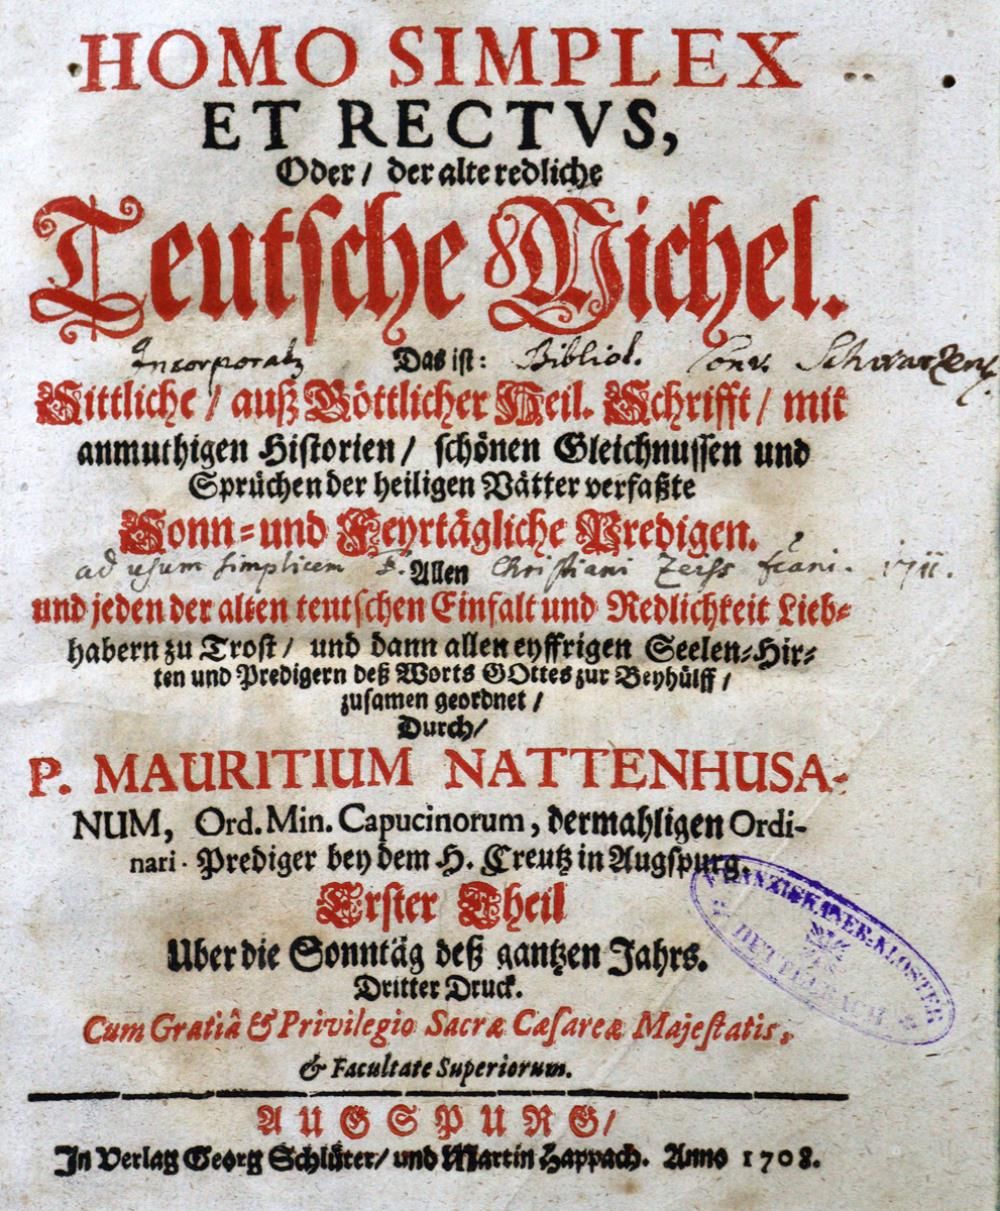 HOMO SIMPLEX
ET RECTVS,
Oder / der alte redliche
Teutsche Michel.
Das ist:
Incorporat9 Bibliot. Conv. Schwarzenb.
Sittliche / auß Göttlicher Heil. Schrifft / mit
anmuthigen Historien / schönen Gleichnussen und
Sprüchen der heiligen Vätter verfaßte
Sonn- und Feyrtägliche Predigen.
ad usum simplicem F. Christiani Zeiss fcani. 1711.
Allen
und jeden der alten teutschen Einfalt und Redlichkeit Lieb-
habern zu Trost / und dann allen eyffrigen Seelen-Hir-
ten und Predigern deß Worts GOttes zur Beyhülff /
zusamen geordnet /
Durch /
P. MAURITIUM NATTENHUSA-
NUM, Ord. Min. Capucinorum, dermahligen Ordi-
nari-Prediger bey dem H. Creutz in Augspurg.
Erster Theil
Uber die Sonntäg deß gantzen Jahrs.
Dritter Druck.
Cum Gratiâ & Privilegio Sacræ Cæsareæ Majestatis,
& Facultate Superiorum.
AUGSPURG /
In Verlag Georg Schlüter / und Martin Happach. Anno 1708.
FRANZISKANER-KLOSTER
DETTELBACH